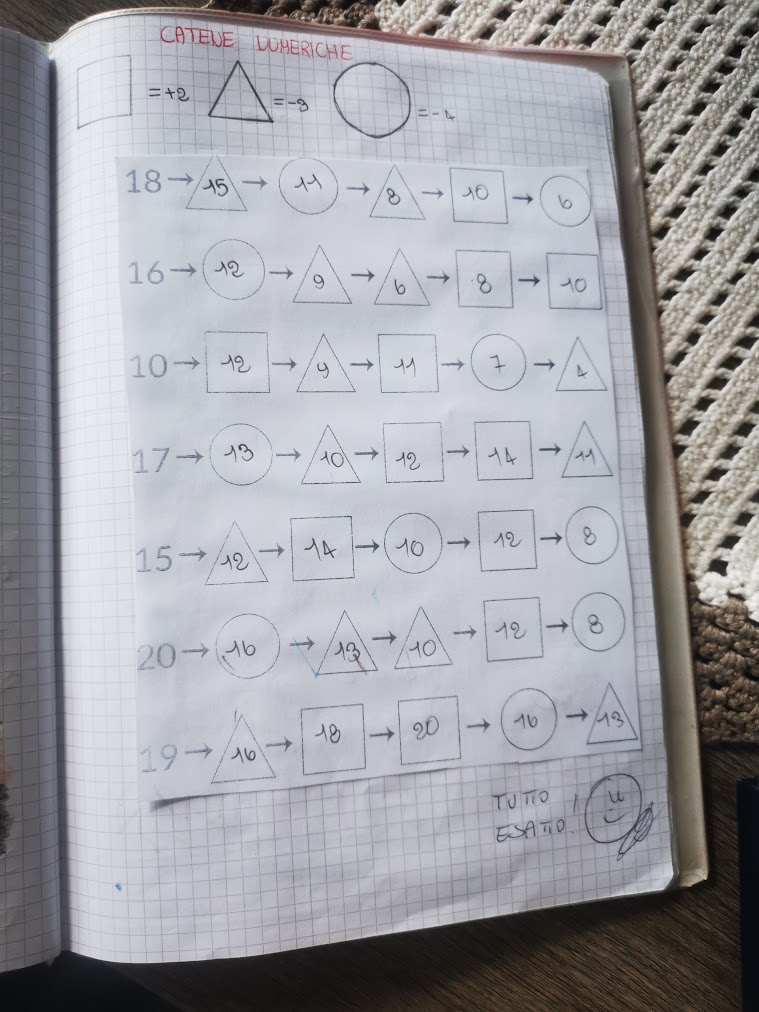 CATENE NUMERICHE
=+2 =-3 =-4
18→ 15 → 11 → 8 → 10 → 6
16→ 12 → 9 → 6 → 8 → 10
10→ 12 → 9 → 11 → 7 → 4
17→ 13 → 10 → 12 → 14 → 11
15→ 12 → 14 → 10 → 12 → 8
20→ 16 → 13 → 10 → 12 → 8
19→ 16 → 18 → 20 → 16 → 13
TUTTO
ESATTO!